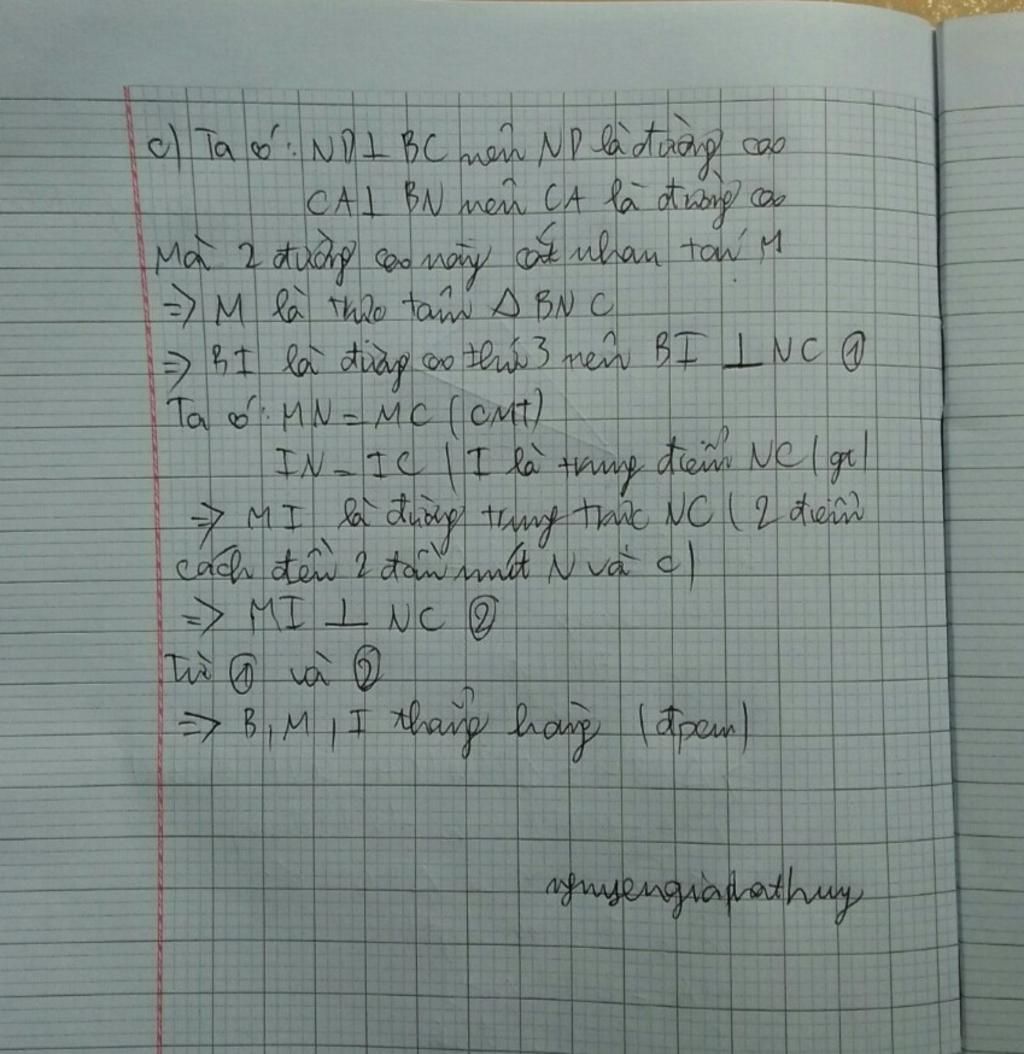 c) Ta có: ND⊥ BC nên ND là đường cao
CA⊥ BN nên CA là đường cao
Mà 2 đường cao này cắt nhau tại M
=> M là trực tâm Δ BNC
=> BI là đường cao thứ 3 nên BI ⊥ NC ①
Ta có: MN = MC (CMT)
IN = IC (I là trung điểm NC (gt)
=> MI là đường trung trực NC (2 điểm
cách đều 2 đầu mút N và C)
=> MI ⊥ NC ②
Từ ① và ②
=> B, M, I thẳng hàng (đpcm)